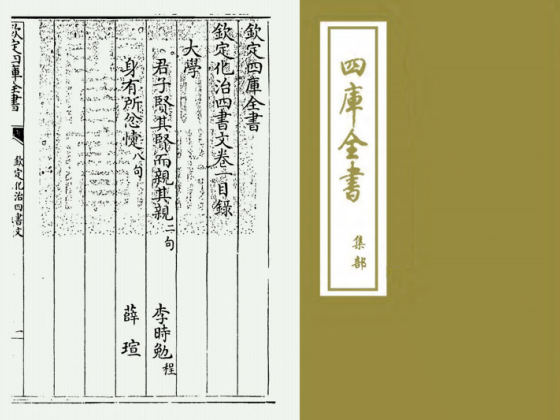 欽定四庫全書
欽定化治四書文卷一目錄
大學
君子賢其賢而親其親二句 李時勉程
身有所忿懥八句 薛瑄
欽定四庫全書
欽定化治四書文
一
四庫全書
集部